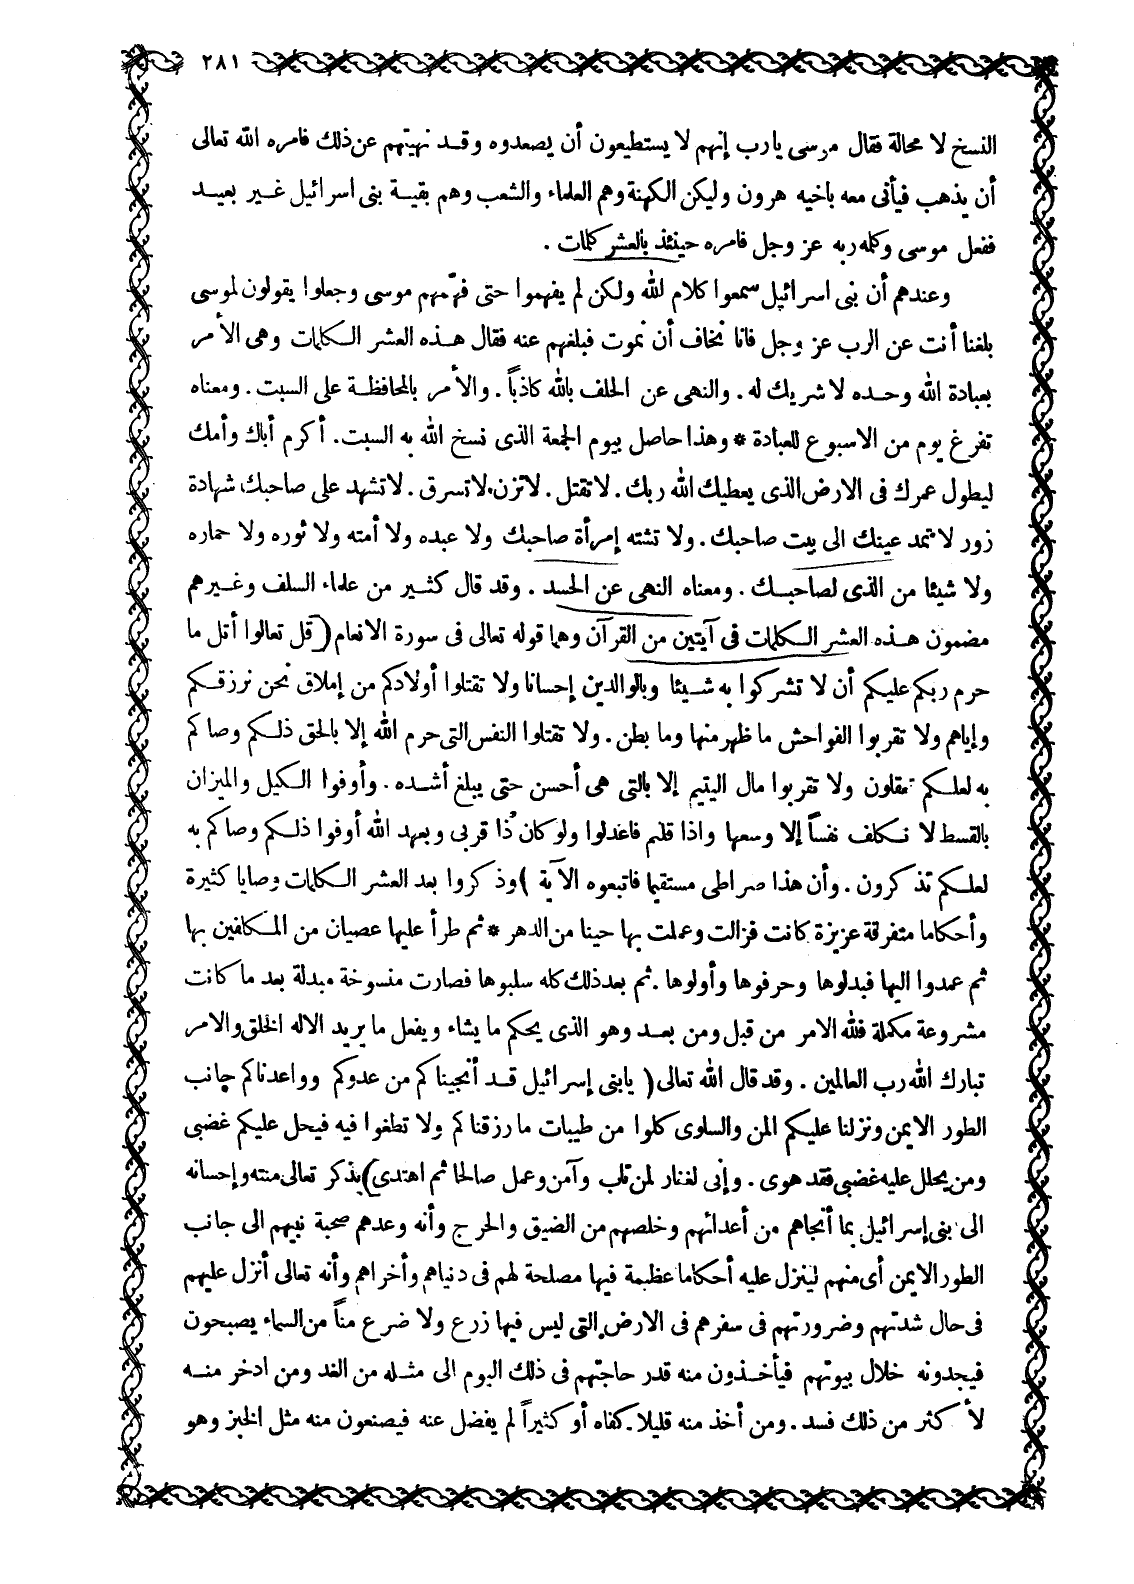 ٢٨١
النسخ لا محالة فقال موسى يارب إنهم لا يستطيعون أن يصعدوه وقد نهيتهم عن ذلك فامره الله تعالى
أن يذهب فيأتى معه باخيه هرون وليكن الكهنة وهم العلماء والشعب وهم بقية بنى اسرائيل غير بعيد
ففعل موسى وكلمه ربه عز وجل فامره حينئذ بالعشر كلمات .
وعندهم أن بنى اسرائيل سمعوا كلام الله ولكن لم يفهموا حتى فهّمهم موسى وجعلوا يقولون لموسى
بلغنا أنت عن الرب عز وجل فانا نخاف أن نموت فبلغهم عنه فقال هذه العشر الكلمات وهى الأمر
بعبادة الله وحده لا شريك له . والنهى عن الحلف بالله كاذباً . والأمر بالمحافظة على السبت . ومعناه
تفرغ يوم من الاسبوع للعبادة * وهذا حاصل بيوم الجمعة الذى نسخ الله به السبت . أكرم أباك وأمك
ليطول عمرك فى الارض الذى يعطيك الله ربك . لا تقتل . لا تزن . لا تسرق . لا تشهد على صاحبك شهادة
زور لا تمد عينك الى بيت صاحبك . ولا تشته إمرأة صاحبك ولا عبده ولا أمته ولا ثوره ولا حماره
ولا شيئا من الذى لصاحبك . ومعناه النهى عن الحسد . وقد قال كثير من علماء السلف وغيرهم
مضمون هذه العشر الكلمات فى آيتين من القرآن وهما قوله تعالى فى سورة الانعام ( قل تعالوا أتل ما
حرم ربكم عليكم أن لا تشركوا به شيئا وبالوالدين إحسانا ولا تقتلوا أولادكم من إملاق نحن نرزقكم
وإياهم ولا تقربوا الفواحش ما ظهر منها وما بطن . ولا تقتلوا النفس التى حرم الله إلا بالحق ذلكم وصاكم
به لعلكم تعقلون ولا تقربوا مال اليتيم إلا بالتى هى أحسن حتى يبلغ أشده . وأوفوا الكيل والميزان
بالقسط لا نكلف نفساً إلا وسعها واذا قلتم فاعدلوا ولو كان ذا قربى وبعهد الله أوفوا ذلكم وصاكم به
لعلكم تذكرون . وأن هذا صراطى مستقيما فاتبعوه الآية ) وذكروا بعد العشر الكلمات وصايا كثيرة
وأحكاما متفرقة عزيزة كانت فزالت وعملت بها حينا من الدهر * ثم طرأ عليها عصيان من المكلفين بها
ثم عمدوا اليها فبدلوها وحرفوها وأولوها . ثم بعد ذلك كله سلبوها فصارت منسوخة مبدلة بعد ما كانت
مشروعة مكملة فلله الامر من قبل ومن بعد وهو الذى يحكم ما يشاء ويفعل ما يريد الاله الخلق والامر
تبارك الله رب العالمين . وقد قال الله تعالى ( يابنى إسرائيل قد أنجيناكم من عدوكم وواعدناكم جانب
الطور الايمن ونزلنا عليكم المن والسلوى كلوا من طيبات ما رزقناكم ولا تطغوا فيه فيحل عليكم غضبى
ومن يحلل عليه غضبى فقد هوى . وإنى لغفار لمن تاب وآمن وعمل صالحا ثم اهتدى ) يذكر تعالى منته وإحسانه
الى بنى إسرائيل بما أنجاهم من أعدائهم وخلصهم من الضيق والحرج وأنه وعدهم صحبة نبيهم الى جانب
الطور الايمن أى منهم لينزل عليه أحكاما عظيمة فيها مصلحة لهم فى دنياهم وأخراهم وأنه تعالى أنزل عليهم
فى حال شدتهم وضرورتهم فى سفرهم فى الارض التى ليس فيها زرع ولا ضرع مناً من السماء يصبحون
فيجدونه خلال بيوتهم فيأخذون منه قدر حاجتهم فى ذلك اليوم الى مثله من الغد ومن ادخر منه
لأكثر من ذلك فسد . ومن أخذ منه قليلا كفاه أو كثيراً لم يفضل عنه فيصنعون منه مثل الخبز وهو